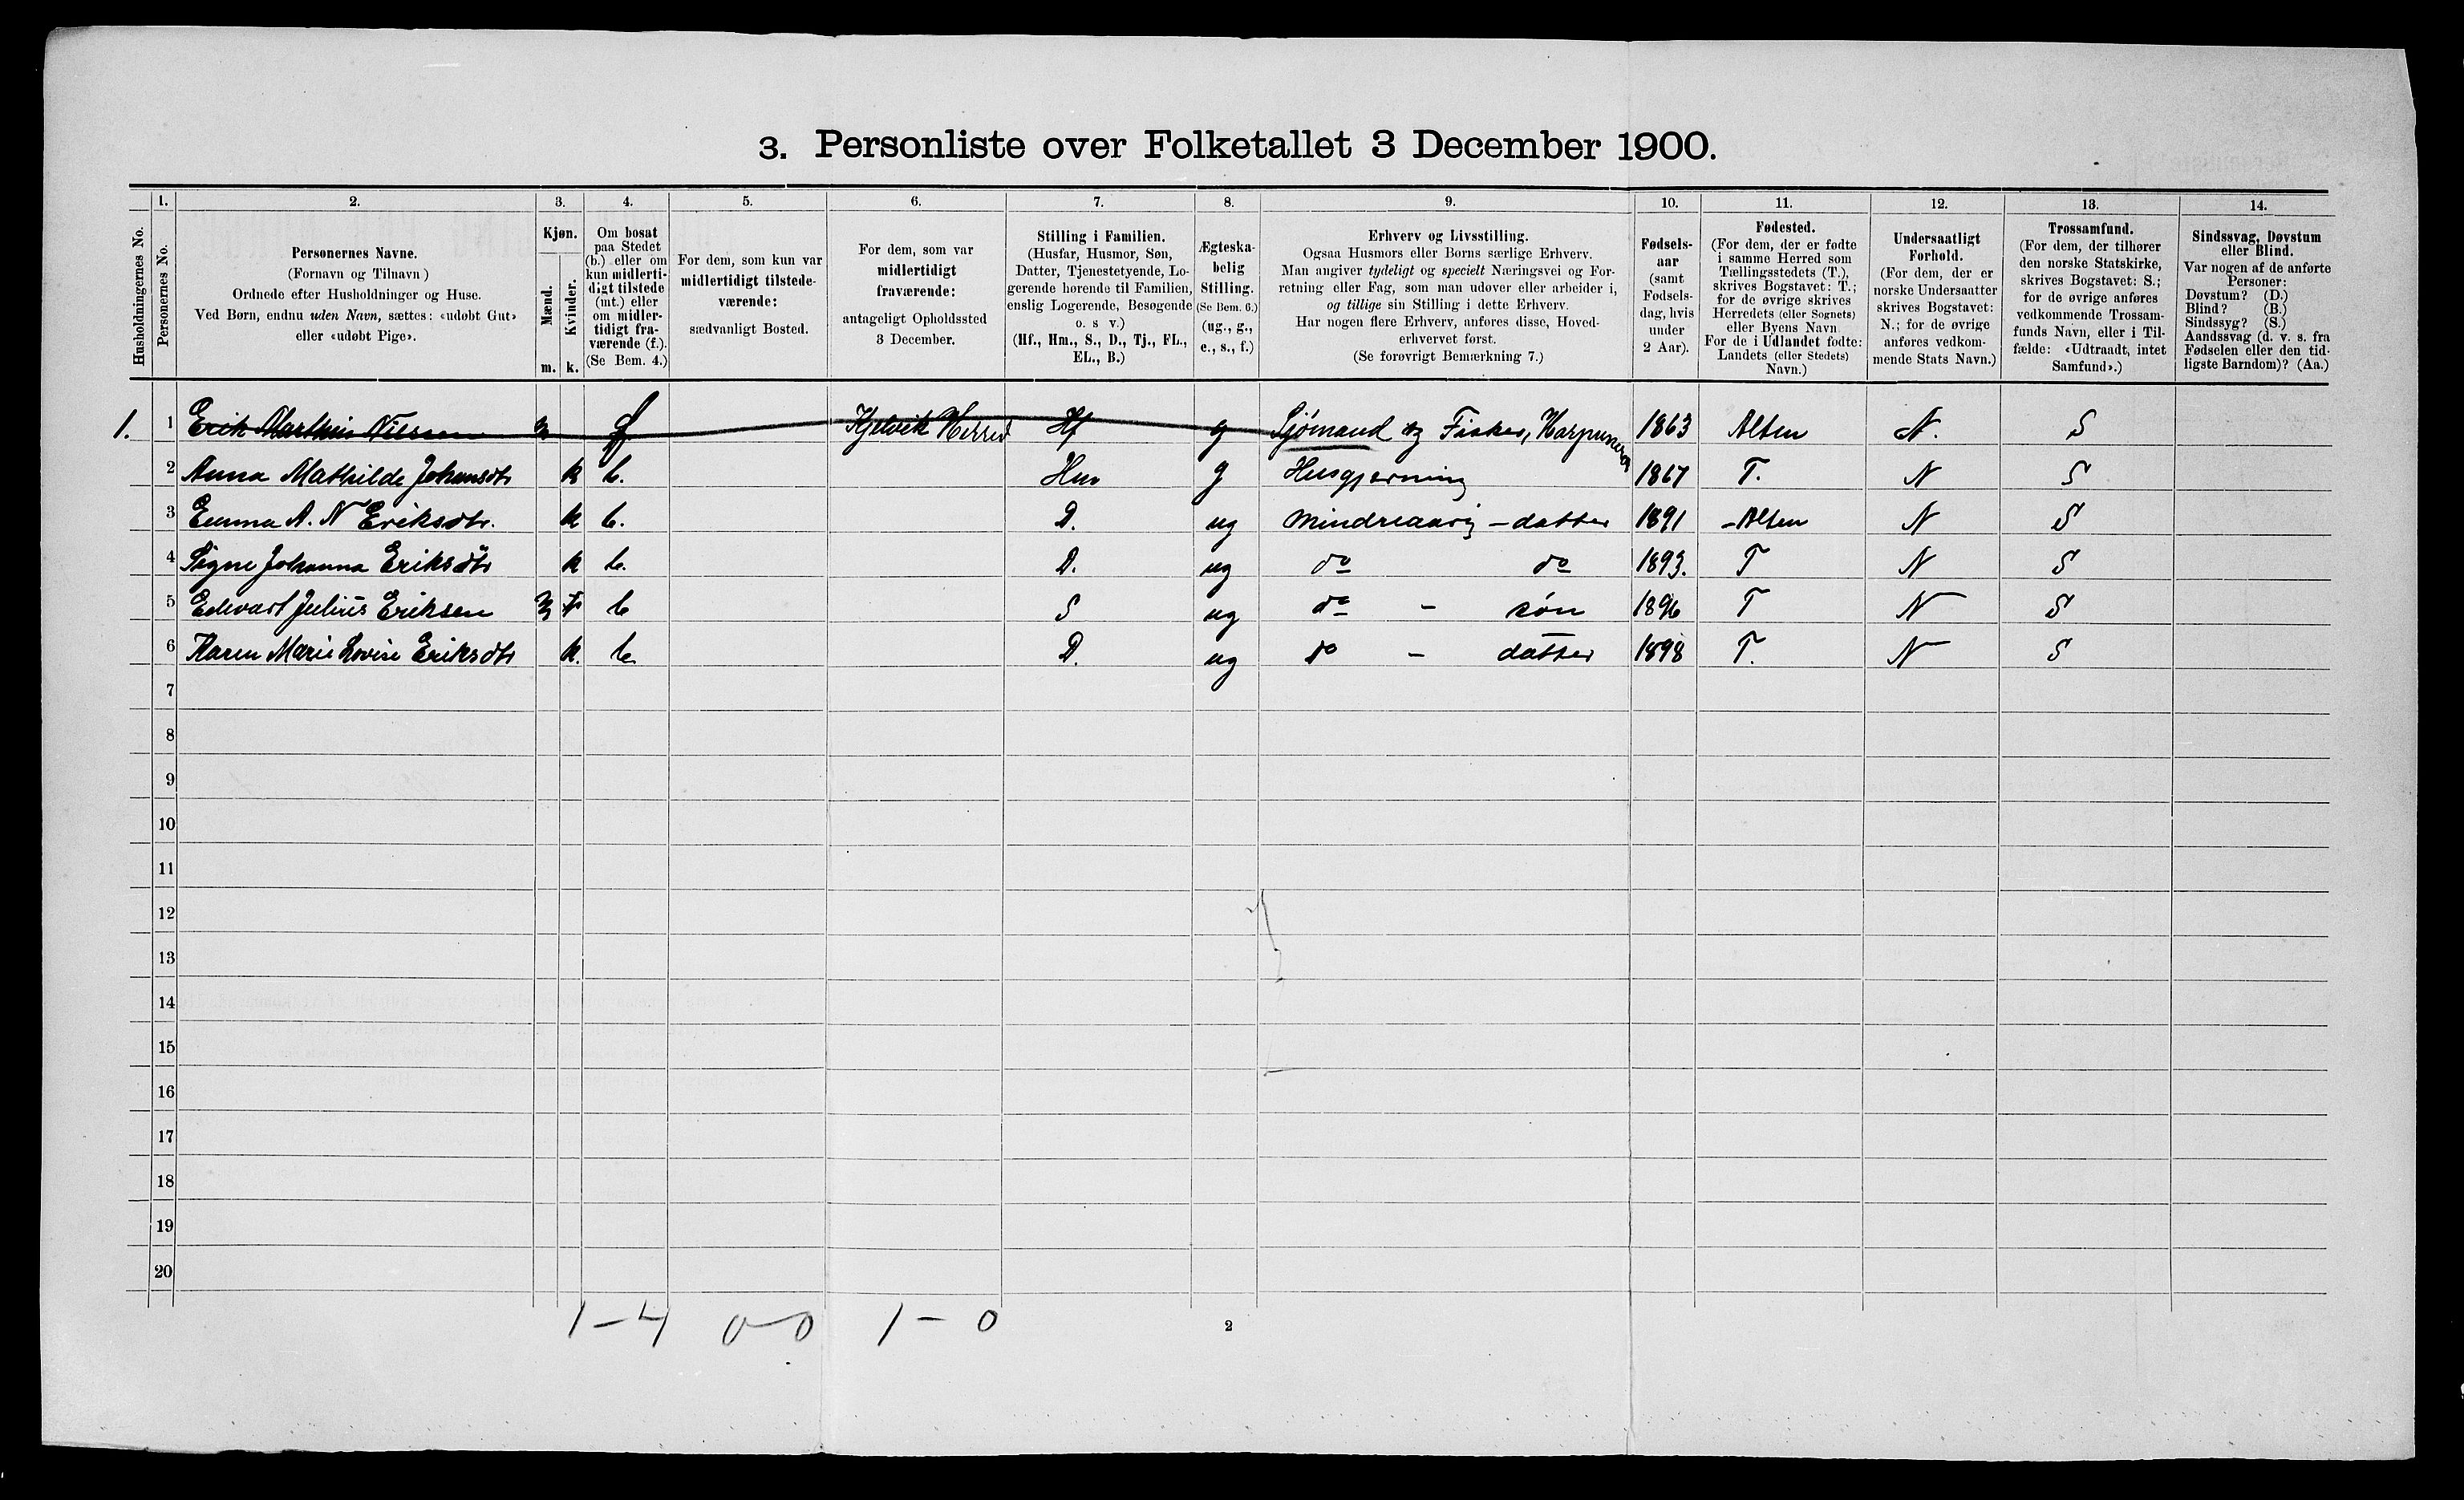 3. Personliste over Folketallet 3 December 1900.
1. 2. 3. 4. 5. 6. 7. 8. 9. 10. 11. 12. 13. 14.
Husholdningernes No.
Personernes No.
Personernes Navne.
(Fornavn og Tilnavn)
Ordnede efter Husholdninger og Huse.
Ved Børn, endnu uden Navn, sættes: «udøbt Gut»
eller «udøbt Pige».
Kjøn.
Mænd.
Kvinder.
m. k.
Om bosat
paa Stedet
(b.) eller om
kun midlerti-
digt tilstede
(mt.) eller
om midler-
tidigt fra-
værende (f.).
(Se Bem. 4.)
For dem, som kun var
midlertidigt tilstede-
værende:
sædvanligt Bosted.
For dem, som var
midlertidigt
fraværende:
antageligt Opholdssted
3 December.
Stilling i Familien.
(Husfar, Husmor, Søn,
Datter, Tjenestetyende, Lo-
gerende hørende til Familien,
enslig Logerende, Besøgende
o. s v.)
(Hf., Hm., S., D., Tj., FL.,
EL., B.)
Ægteska-
belig
Stilling.
(Se Bem. 6.)
(ug., g.,
e., s., f.)
Erhverv og Livsstilling.
Ogsaa Husmors eller Børns særlige Erhverv.
Man angiver tydeligt og specielt Næringsvei og For-
retning eller Fag, som man udover eller arbeider i,
og tillige sin Stilling i dette Erhverv.
Har nogen flere Erhverv, anføres disse, Hoved-
erhvervet først.
(Se forøvrigt Bemærkning 7.)
Fødsels-
aar
(samt
Fødsels-
dag, hvis
under
2 Aar).
Fødested.
(For dem, der er fødte
i samme Herred som
Tællingsstedets (T.),
skrives Bogstavet: T.;
for de øvrige skrives
Herredets (eller Sognets)
eller Byens Navn.
For de i Udlandet fødte:
Landets (eller Stedets)
Navn.)
Undersaatligt
Forhold.
(For dem, der er
norske Undersaatter
skrives Bogstavet:
N.; for de øvrige
anføres vedkom-
mende Stats Navn.)
Trossamfund.
(For dem, der tilhører
den norske Statskirke,
skrives Bogstavet: S.;
for de øvrige anføres
vedkommende Trossam-
funds Navn, eller i Til-
fælde: «Udtraadt, intet
Samfund».)
Sindssvag, Døvstum
eller Blind.
Var nogen af de anførte
Personer:
Døvstum? (D.)
Blind? (B.)
Sindssyg? (S.)
Aandssvag (d. v. s. fra
Fødselen eller den tid-
ligste Barndom)? (Aa.)
1. 1 Erik Marthin Nilssen m f Kjelvik Herred Hf g Sjømand og Fisker, Harpunerer 1863 Alten N. S
2 Anna Mathilde Johansdtr k b. Hm g Husgjerning 1867 T. N S
3 Emma A. N Eriksdtr. k b. D. ug mindreaarig - datter 1891 - Alten N S
4 Signe Johanna Eriksdtr k b. D. ug do do 1893. T N S
5 Edvart Julius Eriksen m k b S ug do - søn 1896 T N S
6 Karen Marie Lovise Eriksdtr k. b. D. ug do - datter 1898 T. N S
7
8
9
10
11
12
13
14
15
16
17
18
19
20
1-4 0-0 1-0
2